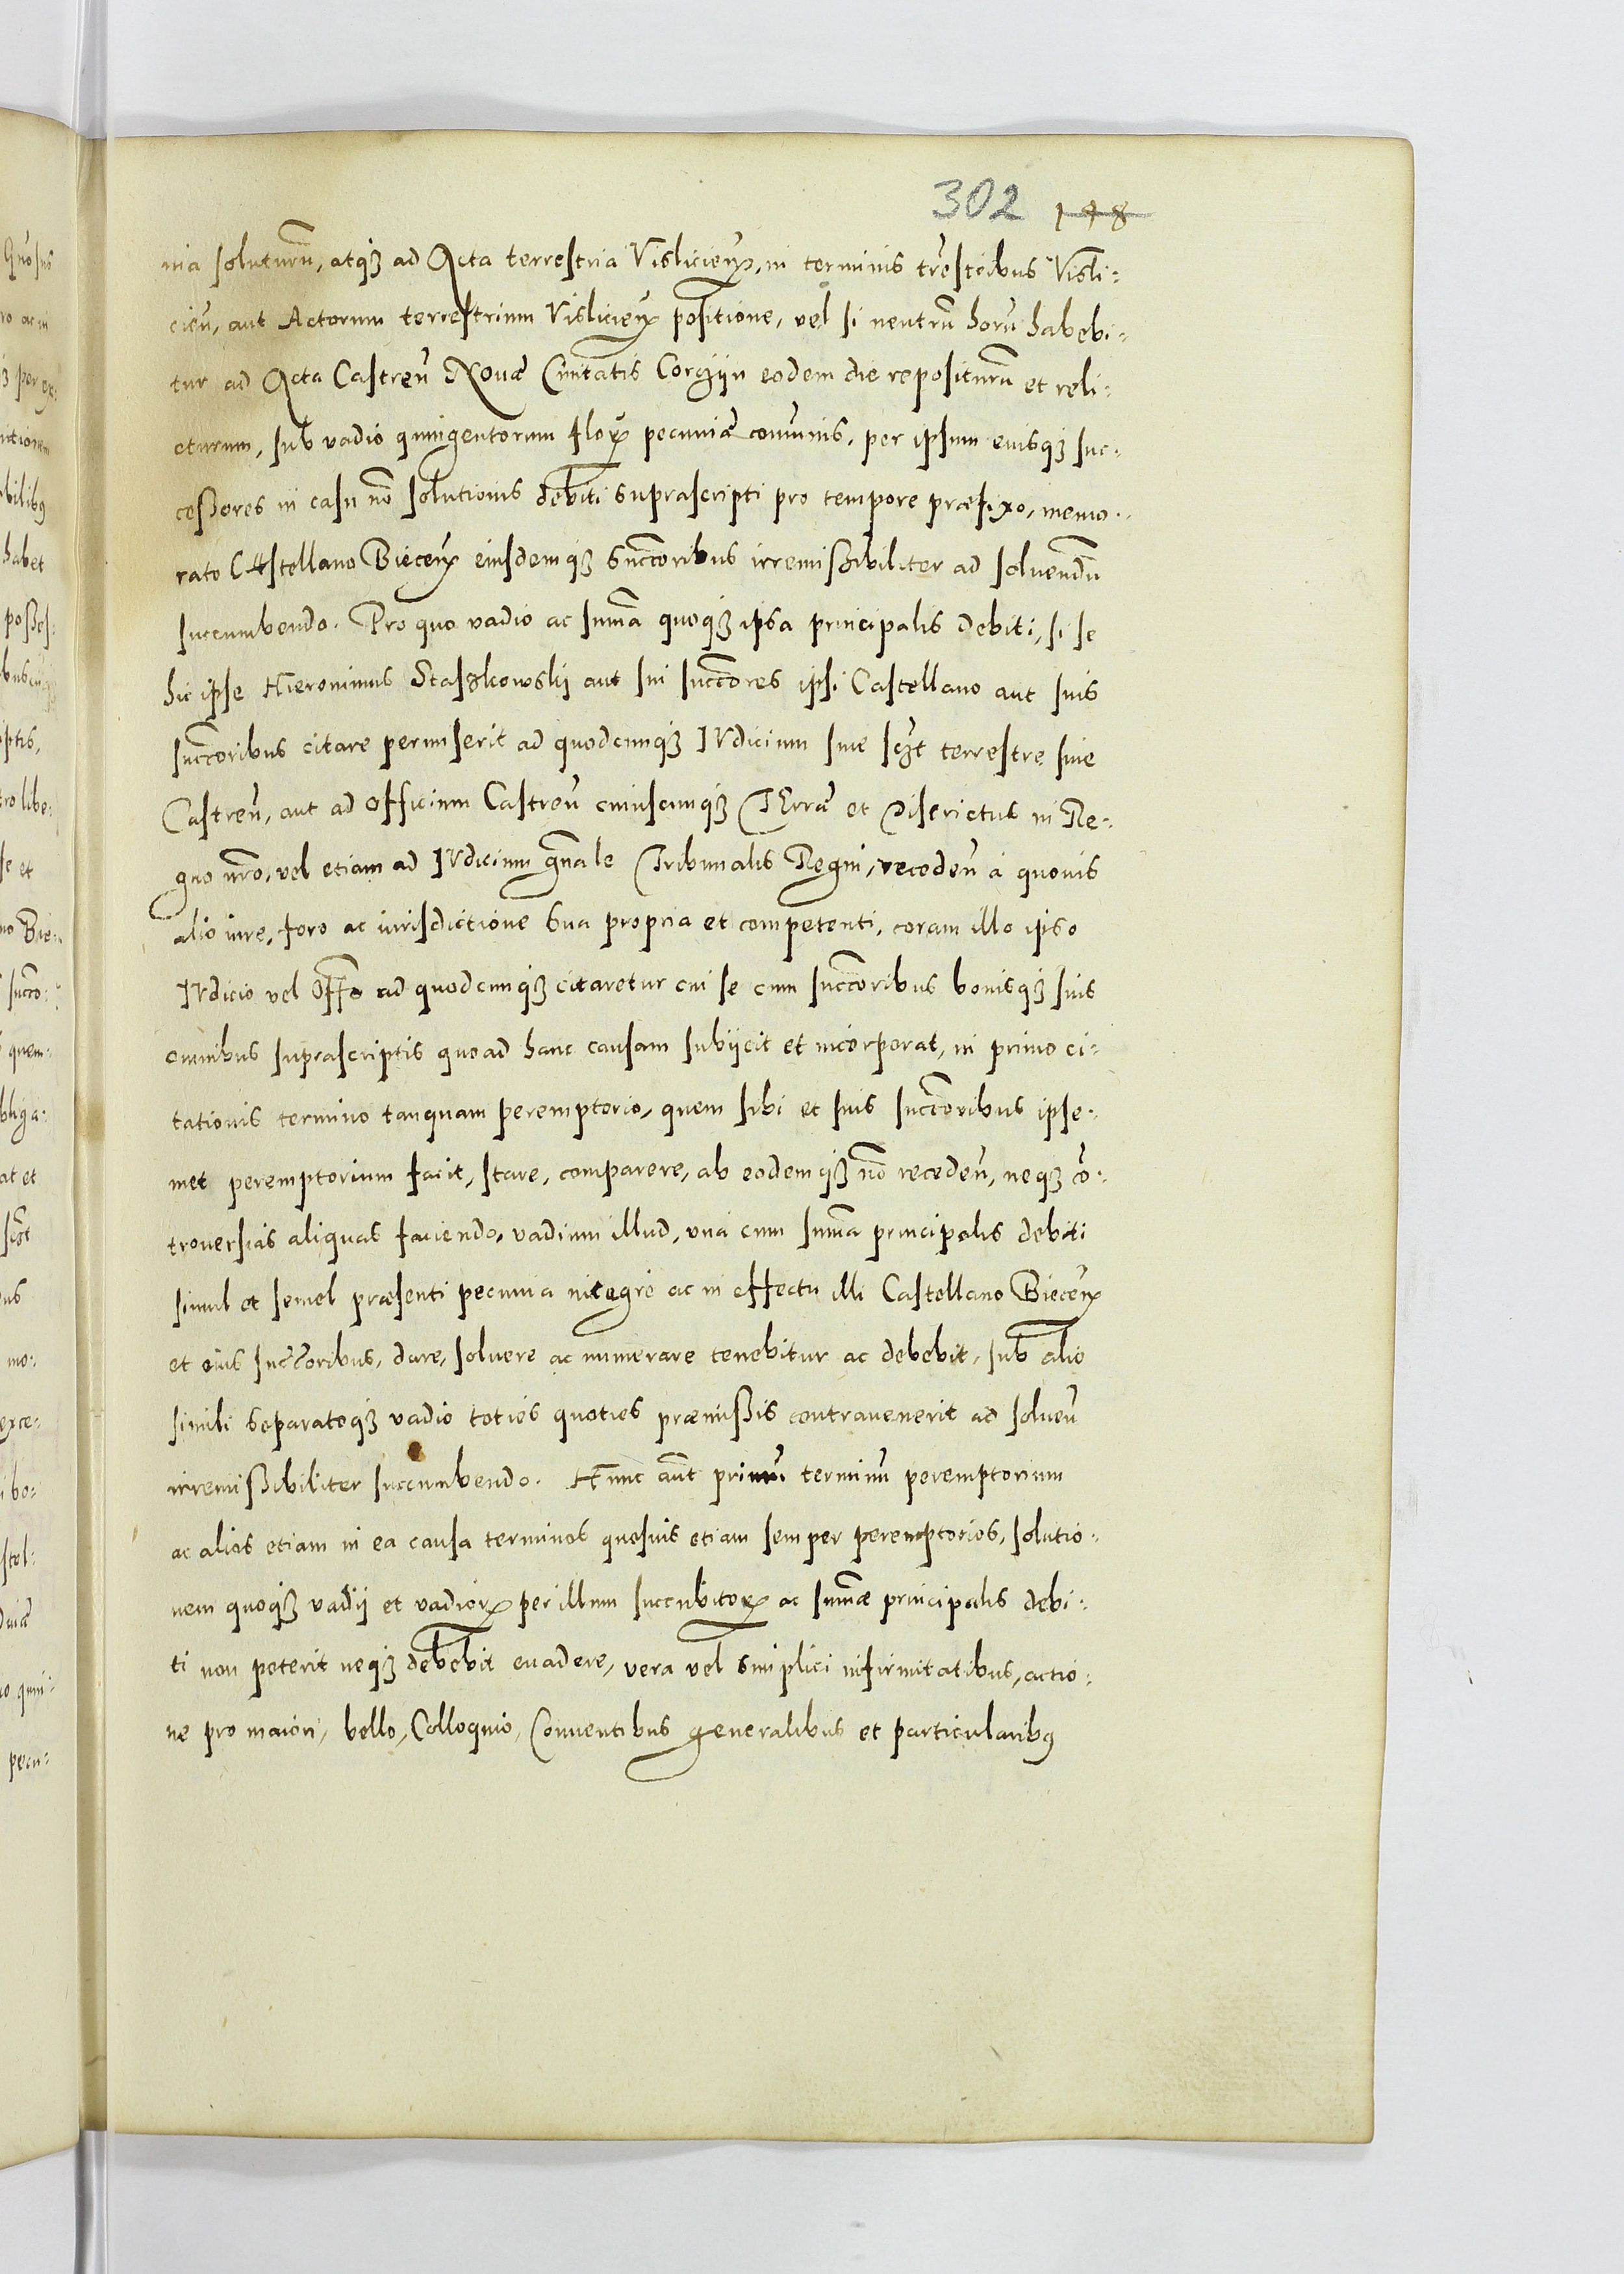 302 178
nia soluturũ, atq3 ad Acta terrestria Vislicieñ, in terminis trẽstribus Visli:
cieñ, aut Actorum terrestrium Vislicieñ positione, vel si neutrũ horũ habebi:
tur ad Acta Castreñ Nouæ Ciuitatis Corczijn eodem die repositurũ et reli:
cturum, sub vadio quingentorum floꝝ pecuniæ cõmunis, per ipsum eiusq3 suc:
cessores in casu nõ solutionis debiti suprascripti pro tempore præfixo, memo:
rato Castellano Bieceñ eiusdemq3 succ̃oribus irremissibiliter ad soluendũ
succumbendo. Pro quo vadio ac sum̃a quoq3 ipsa principalis debiti, si se
hic ipse Hieronimus Staszkowskij aut sui succ̃ores ipsi Castellano aut suis
succ̃oribus citare permiserit ad quodcunq3 Iudicium siue sc̃it terrestre siue
Castreñ, aut ad officium Castreñ cuiuscunq3 Terræ et Districtus in Re:
gno nr̃o, vel etiam ad Iudicium gñale Tribunalis Regni, recedeñ à quouis
alio iure, foro ac iurisdictione sua propria et competenti, coram illo ipso
Iudicio vel Off̃o ad quodcunq3 citaretur cui se cum succ̃oribus bonisq3 suis
omnibus suprascriptis quoad hanc causam subijcit et incorporat, in primo ci:
tationis termino tanquam peremptorio, quem sibi et suis succ̃oribus ipse:
met peremptorium facit, stare, comparere, ab eodemq3 nõ recedeñ, neq3 cõ:
trouersias aliquas faciendo, vadium illud, unà cum sum̃a principalis debiti
simul et semel præsenti pecunia integrè ac in effectu illi Castellano Bieceñ
et eius succ̃oribus, dare, soluere ac numerare tenebitur ac debebit, sub alio
simili separatoq3 vadio toties quoties præmissis contrauenerit ad solueñ
irremissibiliter succumbendo. Hunc aũt primũ terminũ peremptorium
ac alios etiam in ea causa terminos quosuis etiam semper peremptorios, solutio:
nem quoq3 vadij et vadioꝝ per illum succubitoꝝ ac sum̃æ principalis debi:
ti non poterit neq3 debebit euadere, vera vel simplici infirmitatibus, actio:
ne pro maiori, bello, Colloquio, Conuentibus generalibus et particularibꝰ